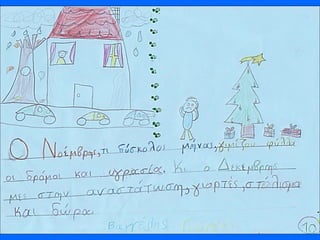 Ο Νοέμβρης, τι δύσκολος μήνας, γεμίζουν φύλλα
οι δρόμοι και υγρασία. Κι ο Δεκέμβρης
μες στην αναστάτωση, γιορτές, στόλισμα
και δώρα.
Βαγγέλης
10